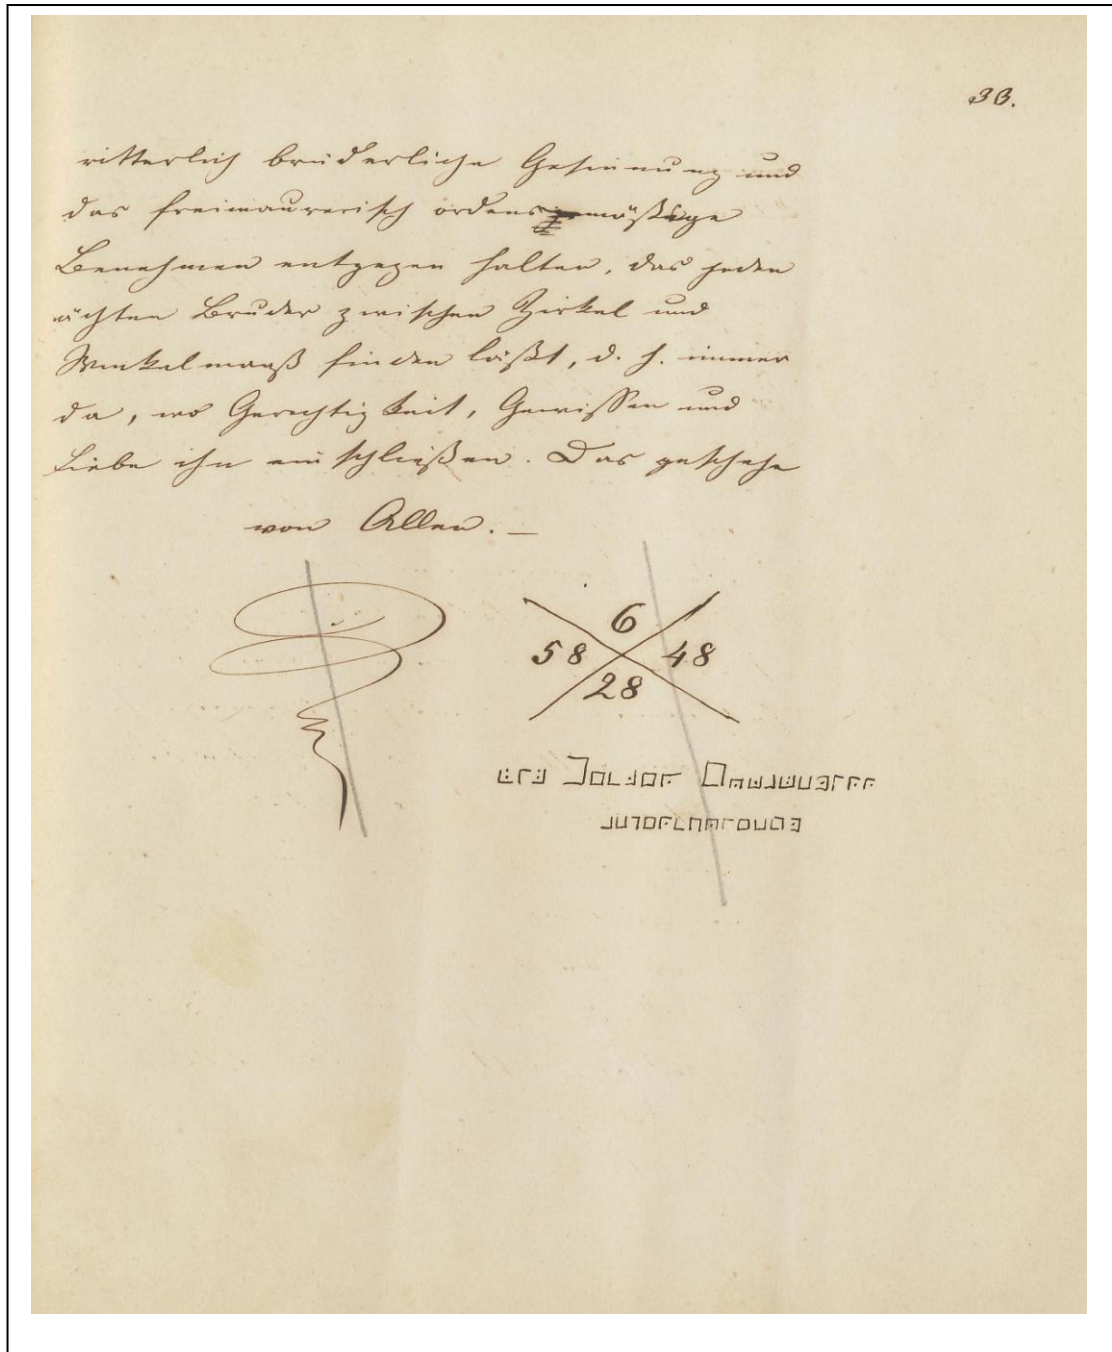 33.
ritterlich brüderliche Gesinnung und
das freimaurerisch ordensgemäßige
Benehmen entgegen halten, das jeden
ächten Bruder zwischen Zirkel und
Winkelmaaß finden läßt, d. h. immer
da, wo Gerechtigkeit, Gewissen und
Liebe ihn einschließen. Das geschehe
von Allen. —
6
58 48
28